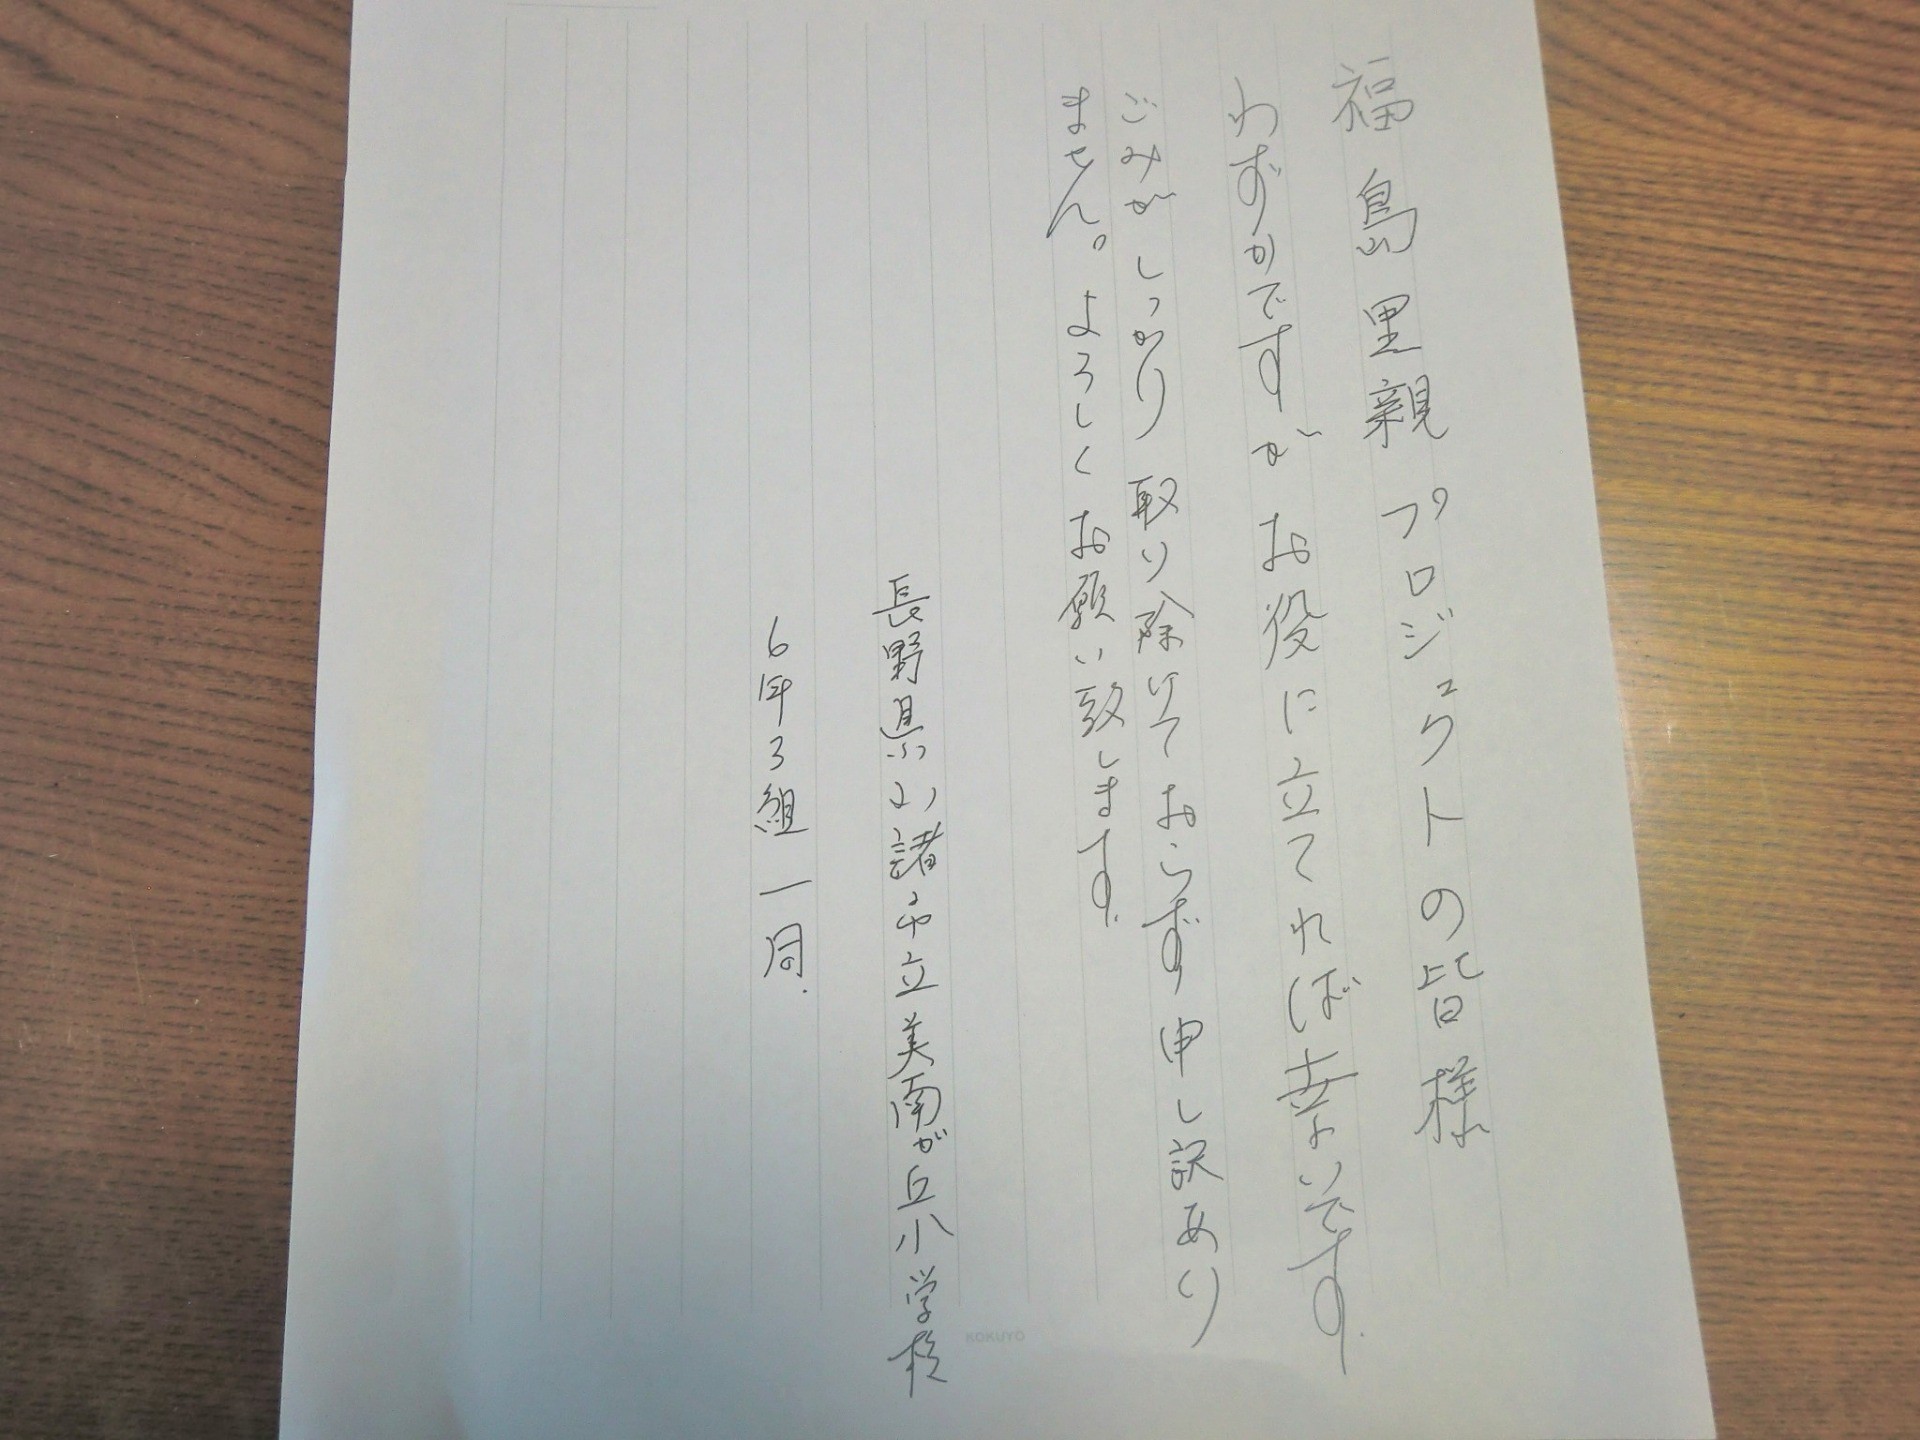 福島里親プロジェクトの皆様
わずかですがお役に立てれば幸いです.
ごみがしっかり取り除けておらず申し訳あり
ません。よろしくお願い致します.
長野県小諸市立美南が丘小学校
6年3組一同.
KOKUYO